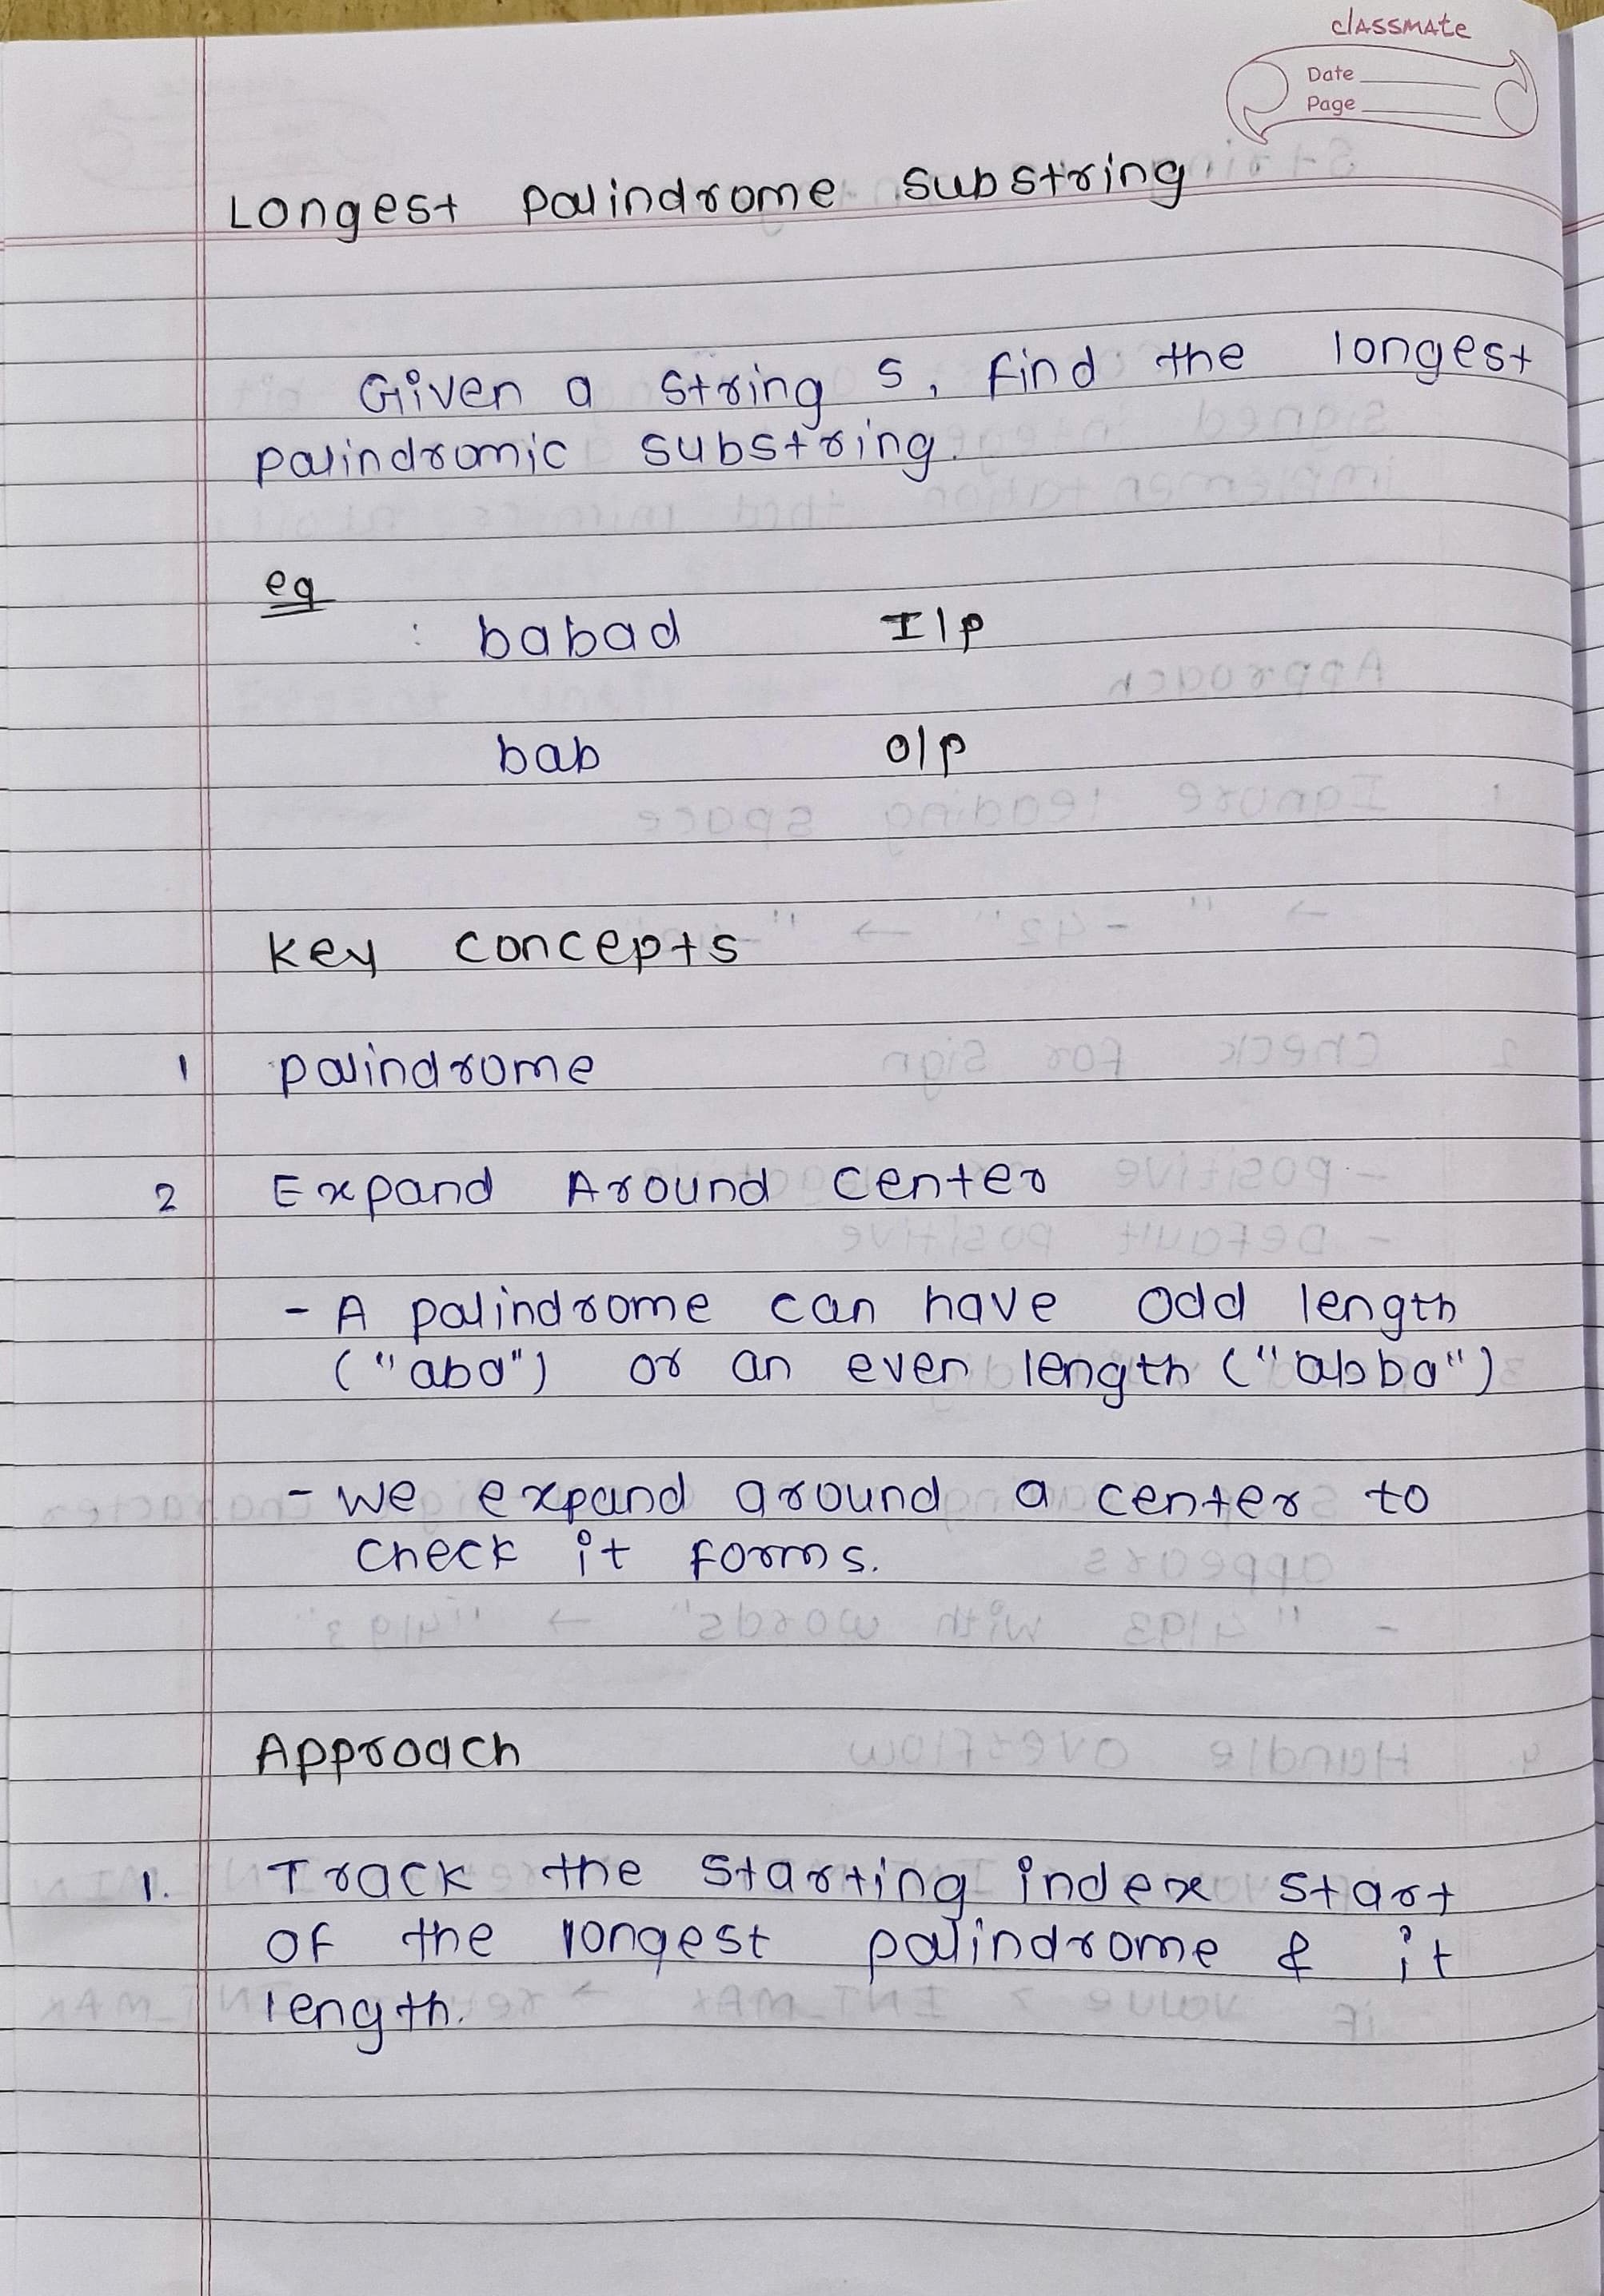 classmate
Date
Page
Longest palindrome substring
Given a string s, find the longest
palindromic substring.
eg
: babad I/p
bab O/p
Key concepts
1 palindrome
2 Expand Around center
- A palindrome can have odd length
("aba") or an even length ("abba")
- we expand around a center to
check it forms.
Approach
1. Track the starting index start
of the longest palindrome & it
length.